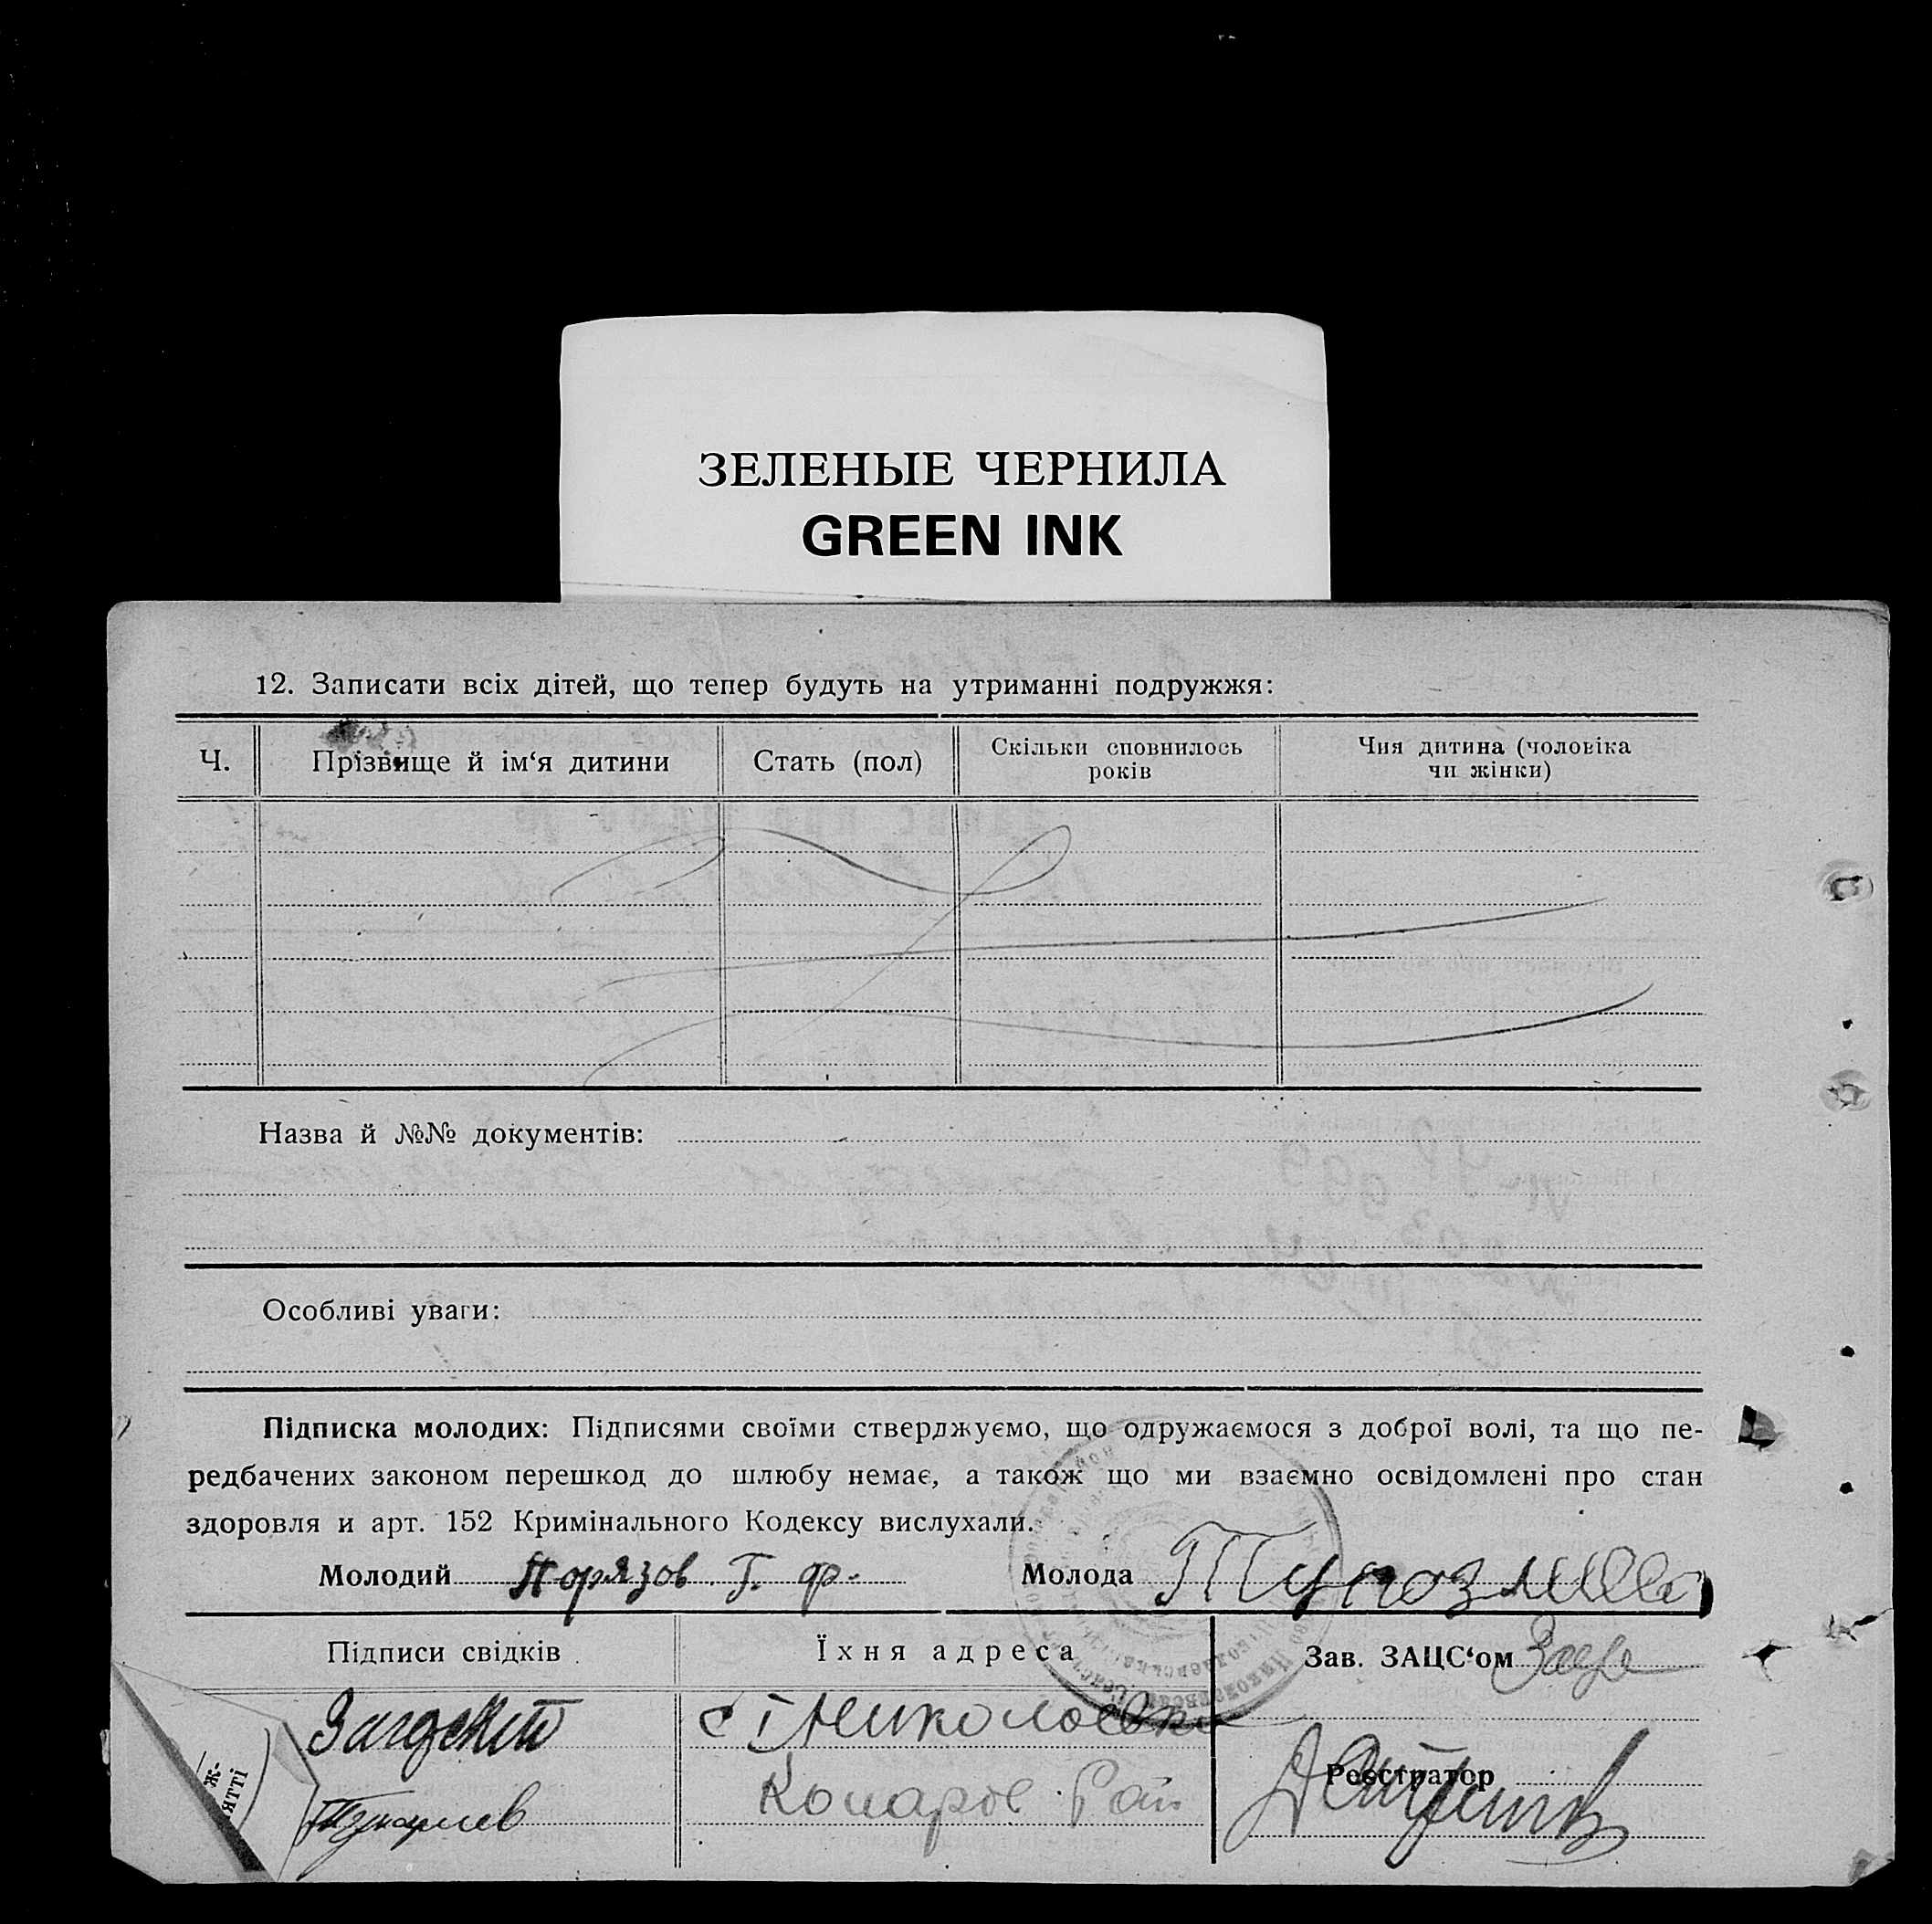 ЗЕЛЕНЫЕ ЧЕРНИЛА
GREEN INK
12. Записати всіх дітей, що тепер будуть на утриманні подружжя:
Ч.
Прізвище й ім‘я дитини
Стать (пол)
Скільки сповнилось
років
Чия дитина (чоловіка
чи жінки)
Назва й №№ документів:
Особливі уваги:
Підписка молодих: Підписями своїми стверджуємо, що одружаємося з доброї волі, та що пе-
редбачених законом перешкод до шлюбу немає, а також що ми взаємно освідомлені про стан
здоровля и арт. 152 Кримінального Кодексу вислухали.
Молодий Порязов Г. Ф.
Молода
Підписи свідків
Їхня адреса
Зав. ЗАЦС‘ом
Реєстратор
Комаров. Рай
ж-
ятті